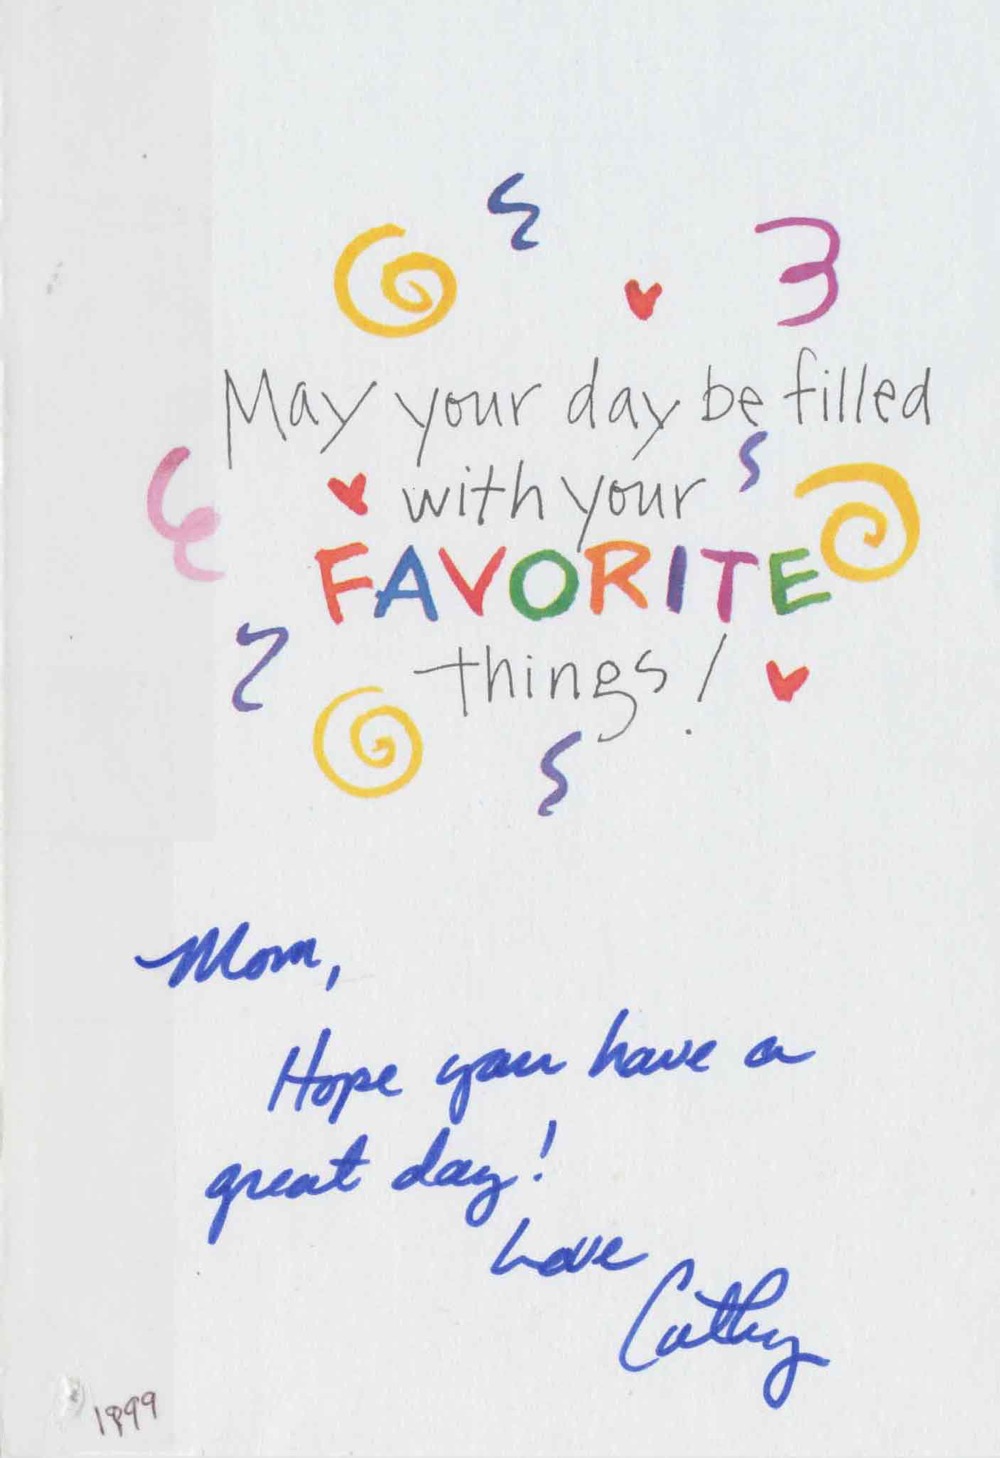 May your day be filled
with your
FAVORITE
things!
Mom,
Hope you have a
great day!
Love
Cathy
1999